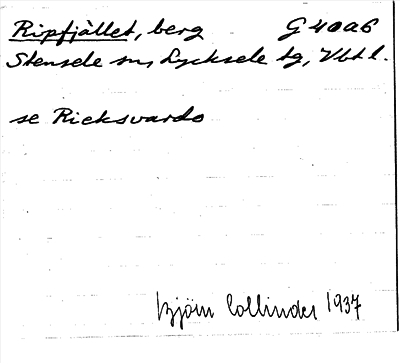 Ripfjället, berg G 40 a 6
Stensele sn, Lycksele tg, Vbtl.
se Rieksvardo
Björn Collinder 1937